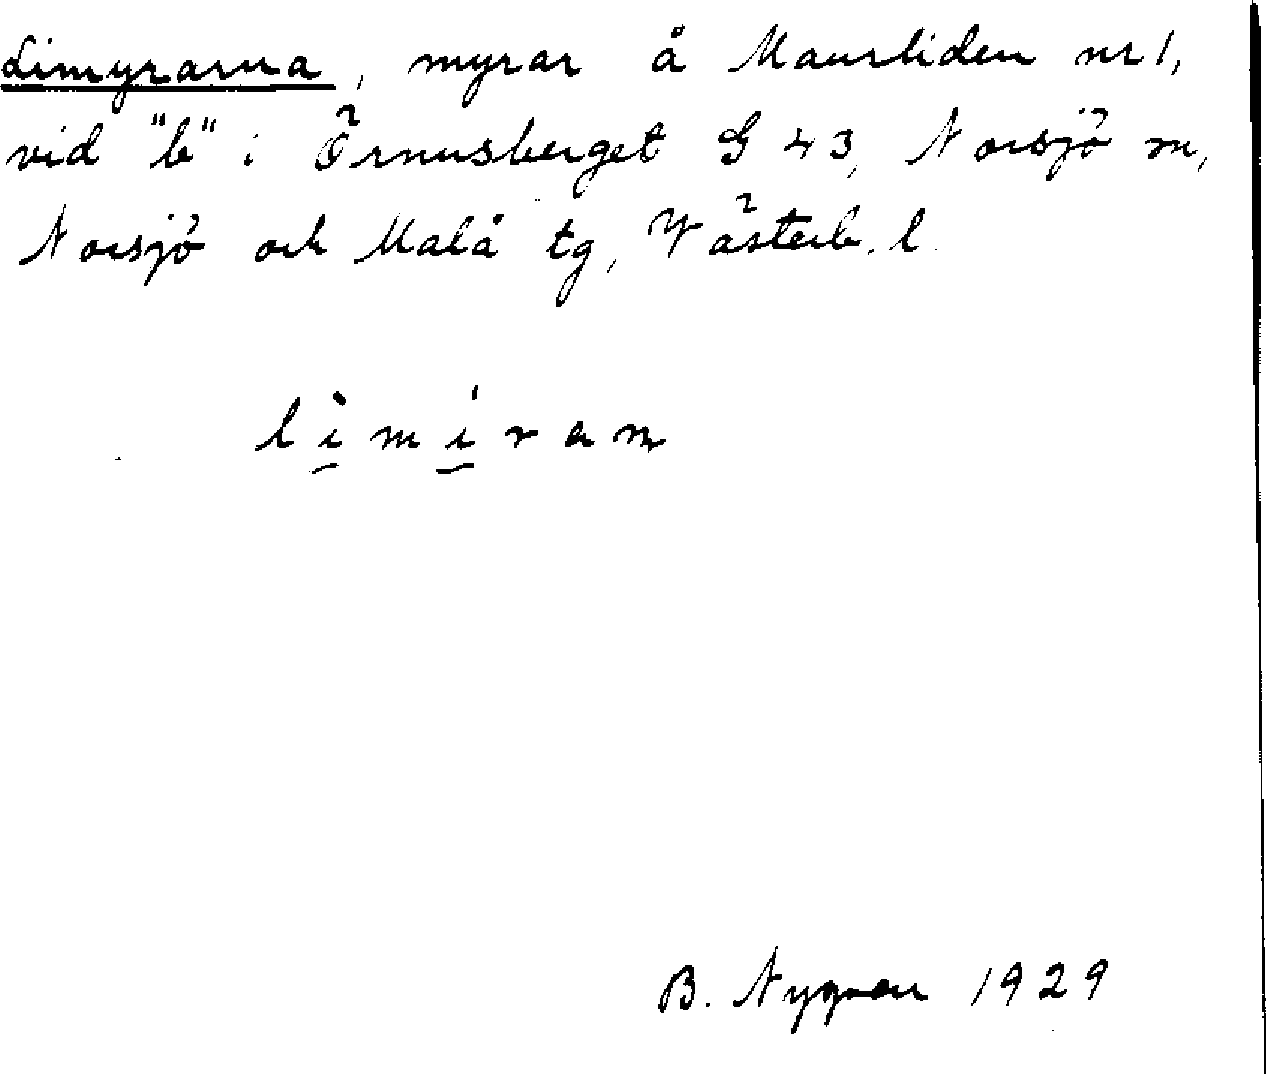 Limyrarna, myrar å Maurliden nr 1,
vid "b" i Örnusberget G 43, Norsjö sn,
Norsjö och Malå tg, Västerb. l.
lìmíran
B. Nygren 1929